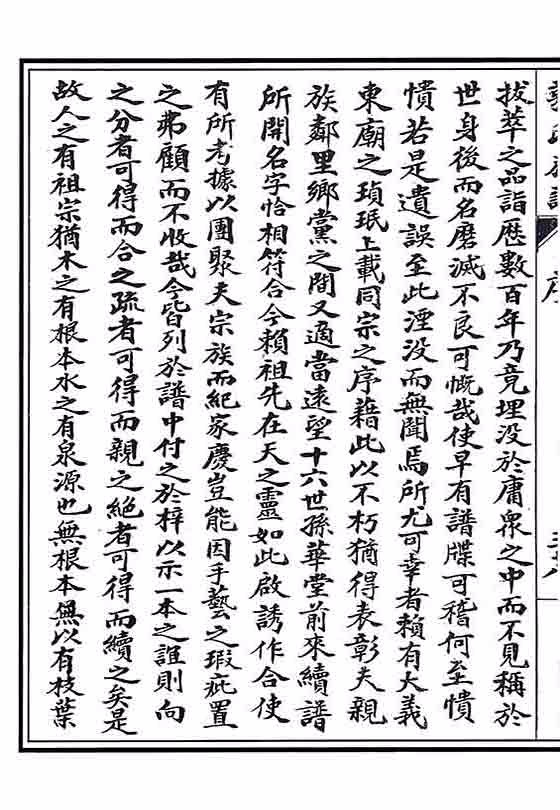 拔萃之品詣歷數百年乃竟埋没於庸衆之中而不見稱於
世身後而名磨滅不良可慨哉使早有譜牒可稽何至憒
憒若是遺誤至此湮没而無聞焉所尤可幸者賴有大義
東廟之瑱珉上載同宗之序藉此以不朽猶得表彰夫親
族鄰里鄉黨之間又適當遠望十六世孫華堂前來續譜
所開名字恰相符合今賴祖先在天之靈如此啟誘作合使
有所考據以團聚夫宗族而紀家慶豈能因手藝之瑕疵置
之弗顧而不收哉今皆列於譜中付之於梓以示一本之誼則向
之分者可得而合之疏者可得而親之絶者可得而續之矣是
故人之有祖宗猶木之有根本水之有泉源也無根本無以有枝葉